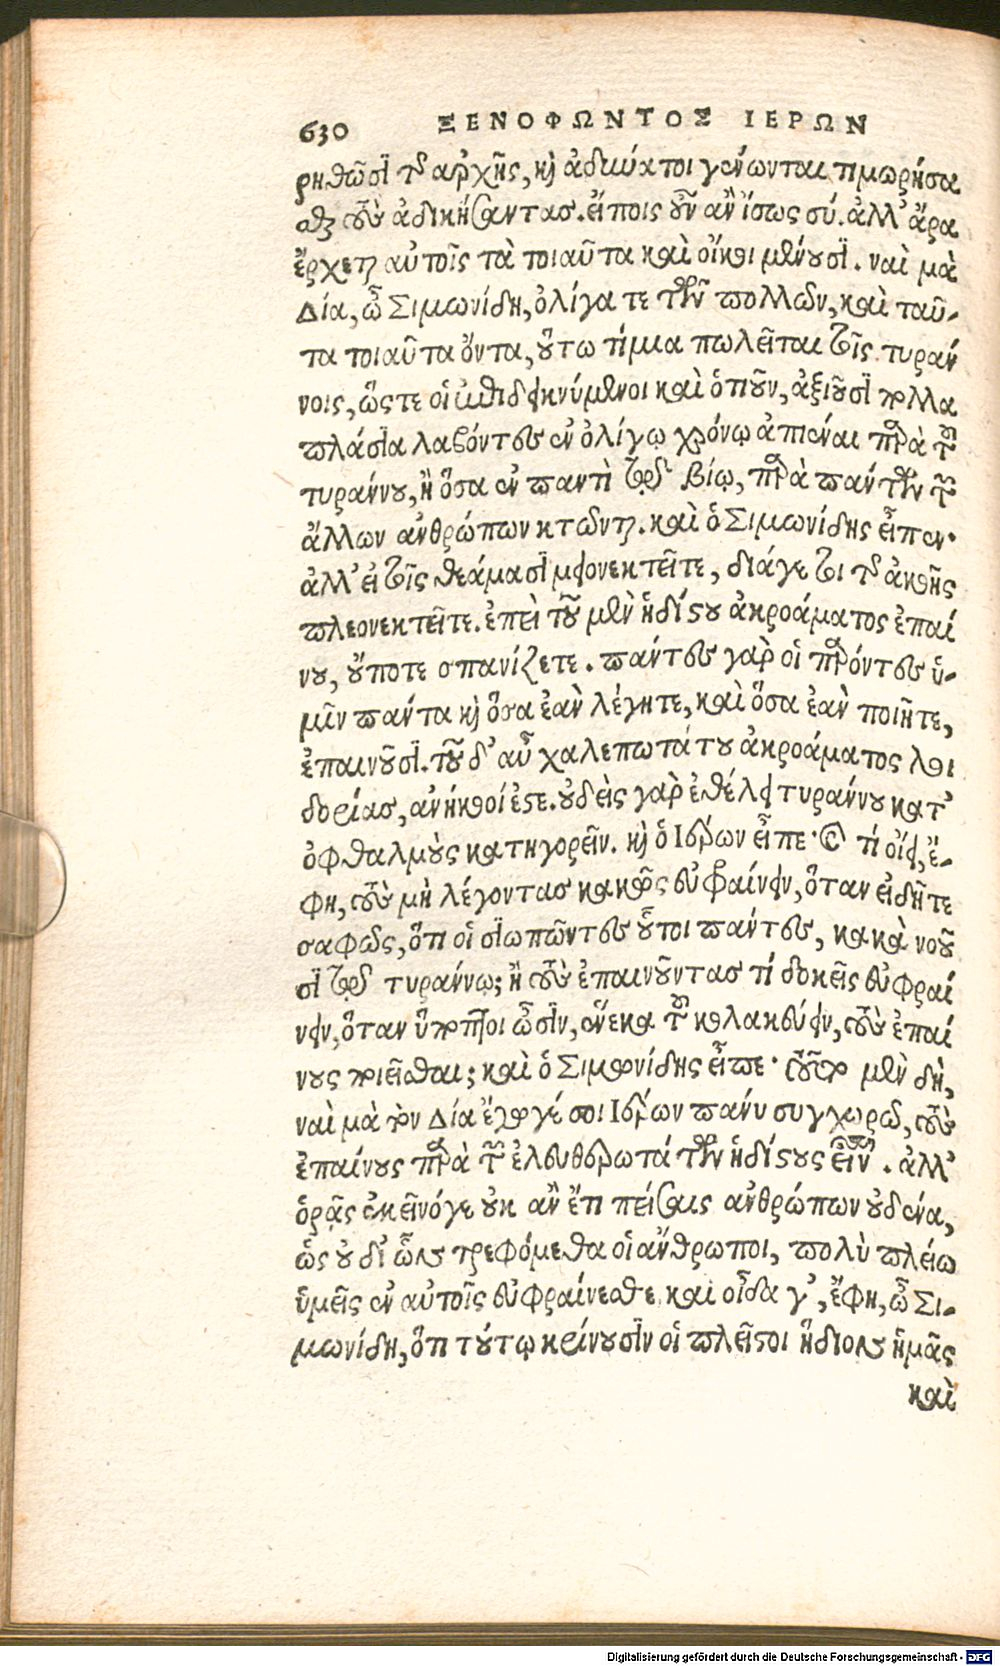 630 ΞΕΝΟΦΩΝΤΟΣ ΙΕΡΩΝ
ρηθῶσι τῆς ἀρχῆς, καὶ ἀδύνατοι γένωνται τιμωρήσα
σθαι τοὺς ἀδικήσαντας. εἴποις οὖν ἂν ἴσως σύ. ἀλλ' ἄρα
ἔρχεται αὐτοῖς τὰ τοιαῦτα καὶ οἴκοι μένουσι. ναὶ μὰ
Δία, ὦ Σιμωνίδη, ὀλίγα τε τῶν πολλῶν, καὶ ταῦ-
τα τοιαῦτα ὄντα, οὕτω τίμια πωλεῖται τοῖς τυράν
νοις, ὥστε οἱ ἐπιδεικνύμενοι καὶ ὁτιοῦν, ἀξιοῦσι πολλα
πλάσια λαβόντες ἐν ὀλίγῳ χρόνῳ ἀπιέναι παρὰ τοῦ
τυράννου, ἢ ὅσα ἐν παντὶ τῷ βίῳ, παρὰ πάντων τῶν
ἄλλων ἀνθρώπων κτῶνται. καὶ ὁ Σιμωνίδης εἶπεν·
ἀλλ' εἰ τοῖς θεάμασι μειονεκτεῖτε, διάγε τοι τῆς ἀκοῆς
πλεονεκτεῖτε. ἐπεὶ τοῦ μὲν ἡδίστου ἀκροάματος ἐπαί
νου, οὔποτε σπανίζετε. πάντες γὰρ οἱ παρόντες ὑ-
μῖν πάντα καὶ ὅσα ἐὰν λέγητε, καὶ ὅσα ἐὰν ποιῆτε,
ἐπαινοῦσι. τοῦ δ' αὖ χαλεπωτάτου ἀκροάματος λοι
δορίας, ἀνήκοοί ἐστε. οὐδεὶς γὰρ ἐθέλει τυράννου κατ'
ὀφθαλμοὺς κατηγορεῖν. καὶ ὁ Ἱέρων εἶπε· καὶ τί οἴει, ἔ-
φη, τοὺς μὴ λέγοντας κακῶς εὐφραίνειν, ὅταν εἰδῆτε
σαφῶς, ὅτι οἱ σιωπῶντες οὗτοι πάντες, κακὰ νοοῦ
σι τῷ τυράννῳ; ἢ τοὺς ἐπαινοῦντας τί δοκεῖς εὐφραί
νειν, ὅταν ὕποπτοι ὦσιν, ἕνεκα τοῦ κολακεύειν, τοὺς ἐπαί
νους ποιεῖσθαι; καὶ ὁ Σιμωνίδης εἶπε· τοῦτο μὲν δὴ,
ναὶ μὰ τὸν Δία ἔγωγέ σοι Ἱέρων πάνυ συγχωρῶ, τοὺς
ἐπαίνους παρὰ τῶν ἐλευθερωτάτων ἡδίστους εἶναι. ἀλλ'
ὁρᾷς ἐκεῖνόγε οὐκ ἂν ἔτι πείσαις ἀνθρώπων οὐδένα,
ὡς οὐ δι' ὧν τρεφόμεθα οἱ ἄνθρωποι, πολὺ πλείω
ὑμεῖς ἐν αὐτοῖς εὐφραίνεσθε. καὶ οἶδα γ', ἔφη, ὦ Σι-
μωνίδη, ὅτι τούτῳ κρίνουσιν οἱ πλεῖστοι ἥδιον ἡμᾶς
καὶ
Digitalisierung gefördert durch die Deutsche Forschungsgemeinschaft - DFG